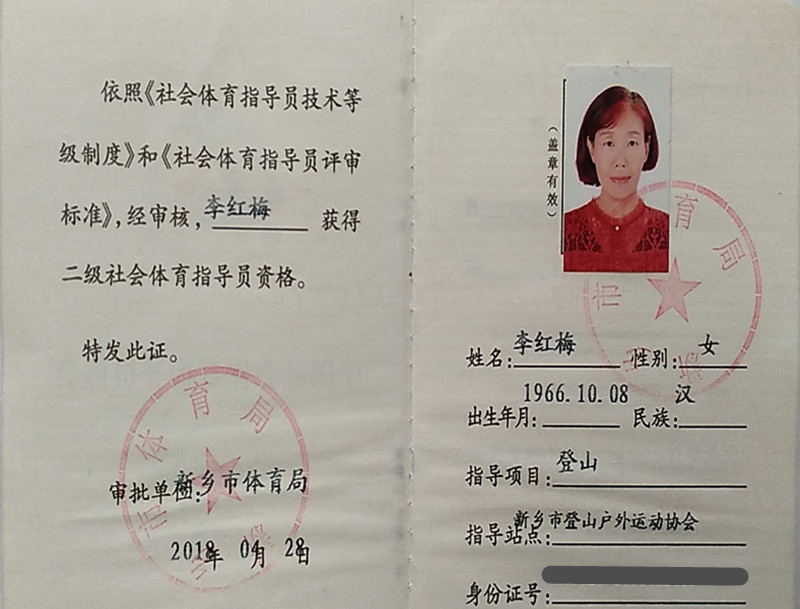 依照《社会体育指导员技术等
级制度》和《社会体育指导员评审
标准》，经审核，李红梅 获得
二级社会体育指导员资格。
特发此证。
审批单位：新乡市体育局
2018年 04月 28日
市体育局
（盖章有效）
育局
市
姓名：李红梅 性别：女
出生年月：1966.10.08 民族：汉
指导项目：登山
指导站点：新乡市登山户外运动协会
身份证号：